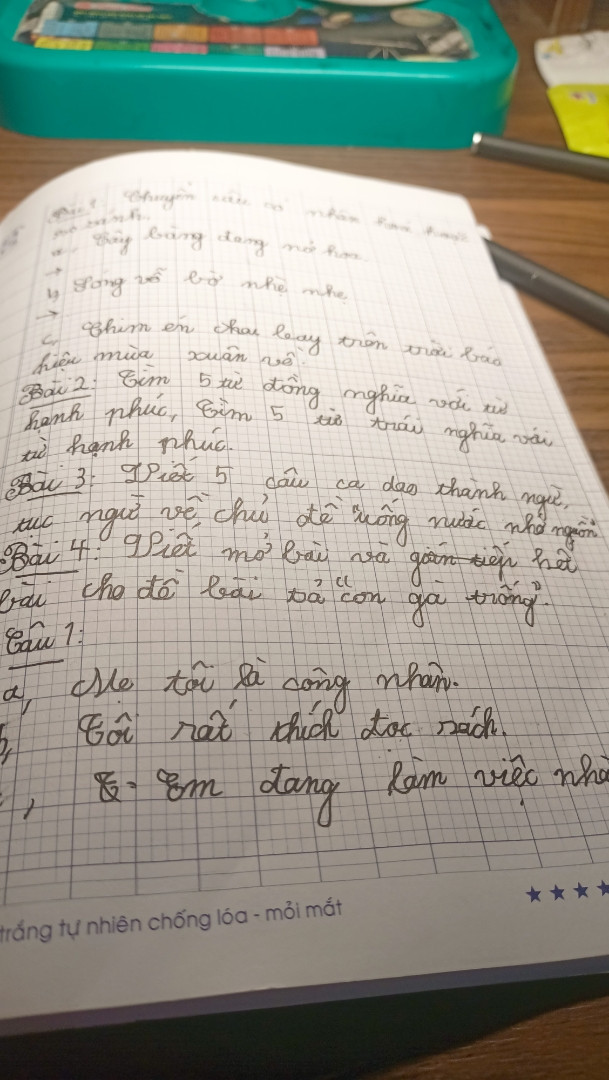 Bài 1: Chuyển câu có nhân hóa hoặc
so sánh.
a. Cây bàng đang nở hoa.
→
b, Sóng vỗ bờ nhè nhẹ
→
c, Chim én chao bay trên trời báo
hiệu mùa xuân về.
Bài 2: Tìm 5 từ đồng nghĩa với từ
hạnh phúc, Tìm 5 từ trái nghĩa với
từ hạnh phúc.
Bài 3: Viết 5 câu ca dao thành ngữ,
tục ngữ về chủ đề uống nước nhớ nguồn
Bài 4: Viết mở bài và gián tiếp kết
bài cho đề bài tả "con gà trống".
Câu 1:
a, Mẹ tôi là công nhân.
b, Tôi rất thích đọc sách.
, Em đang làm việc nhà
trắng tự nhiên chống lóa - mỏi mắt